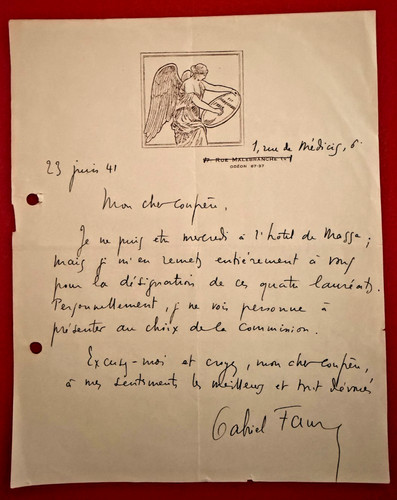 1, rue de Médicis, 6ᵉ
17 RUE MALEBRANCHE (Vᵉ)
ODÉON 87-37
23 juin 41
Mon cher confrère,
Je ne puis être mercredi à l'hôtel de Massa ;
mais je m'en remets entièrement à vous
pour la désignation de ces quatre lauréats.
Personnellement, je ne vois personne à
présenter au choix de la Commission.
Excusez-moi et croyez, mon cher confrère,
à mes sentiments les meilleurs et tout dévoués
Gabriel Faure